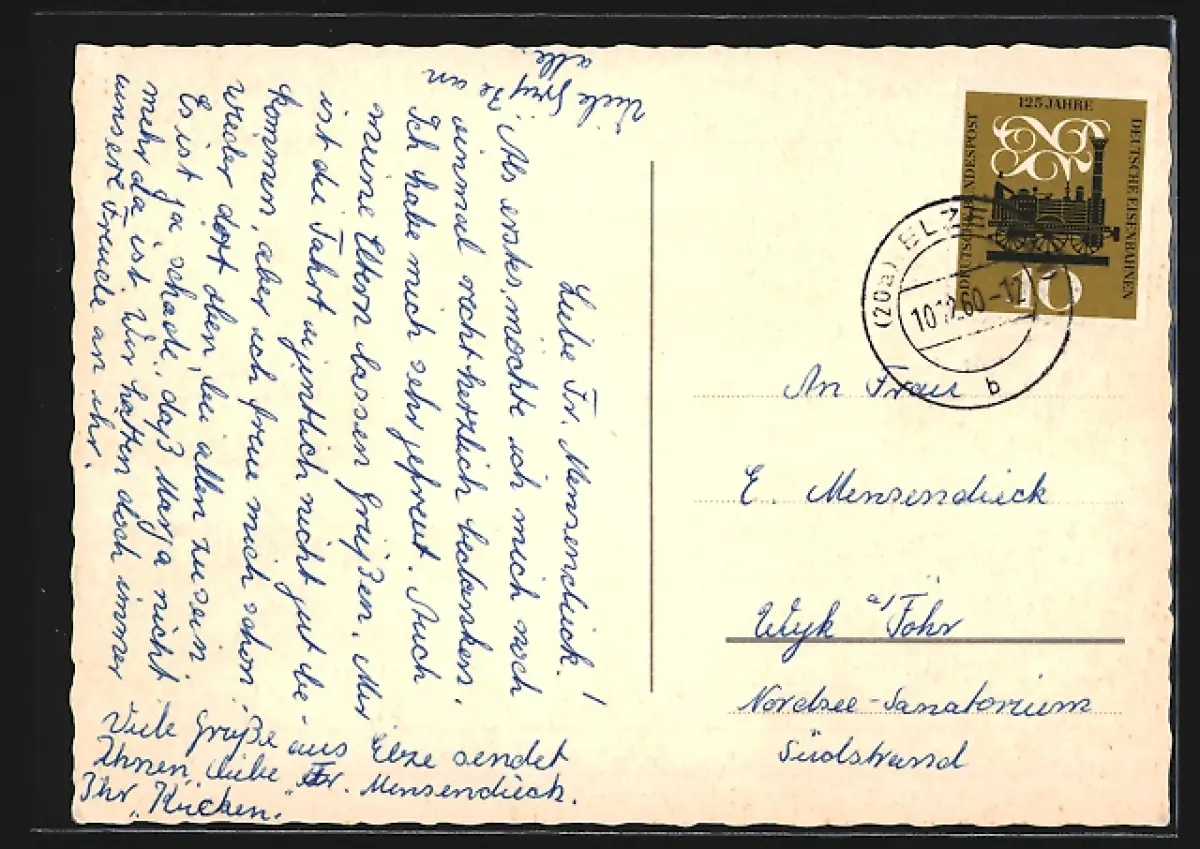 Liebe Fr. Mensendieck!
Als erstes, möchte ich mich noch
einmal recht herzlich bedanken.
Ich habe mich sehr gefreut. Auch
meine Eltern lassen Grüßen. Mir
ist die Fahrt eigentlich nicht gut be-
kommen, aber ich freue mich schon
wieder dort oben, bei allen zu sein.
Es ist ja schade, daß Marga nicht
mehr da ist. Wir hatten doch immer
unsere Freude an ihr.
Viele Grüße aus Elze sendet
Ihnen, liebe Fr. Mensendieck.
Ihr "Kücken."
Viele Grüße an
alle.
125 JAHRE
DEUTSCHE EISENBAHNEN
DEUTSCHE BUNDESPOST
10
(20a) ELZE
10.12.60-12
b
An Frau
E. Mensendieck
Wyk a/Föhr
Nordsee-Sanatorium
Südstrand